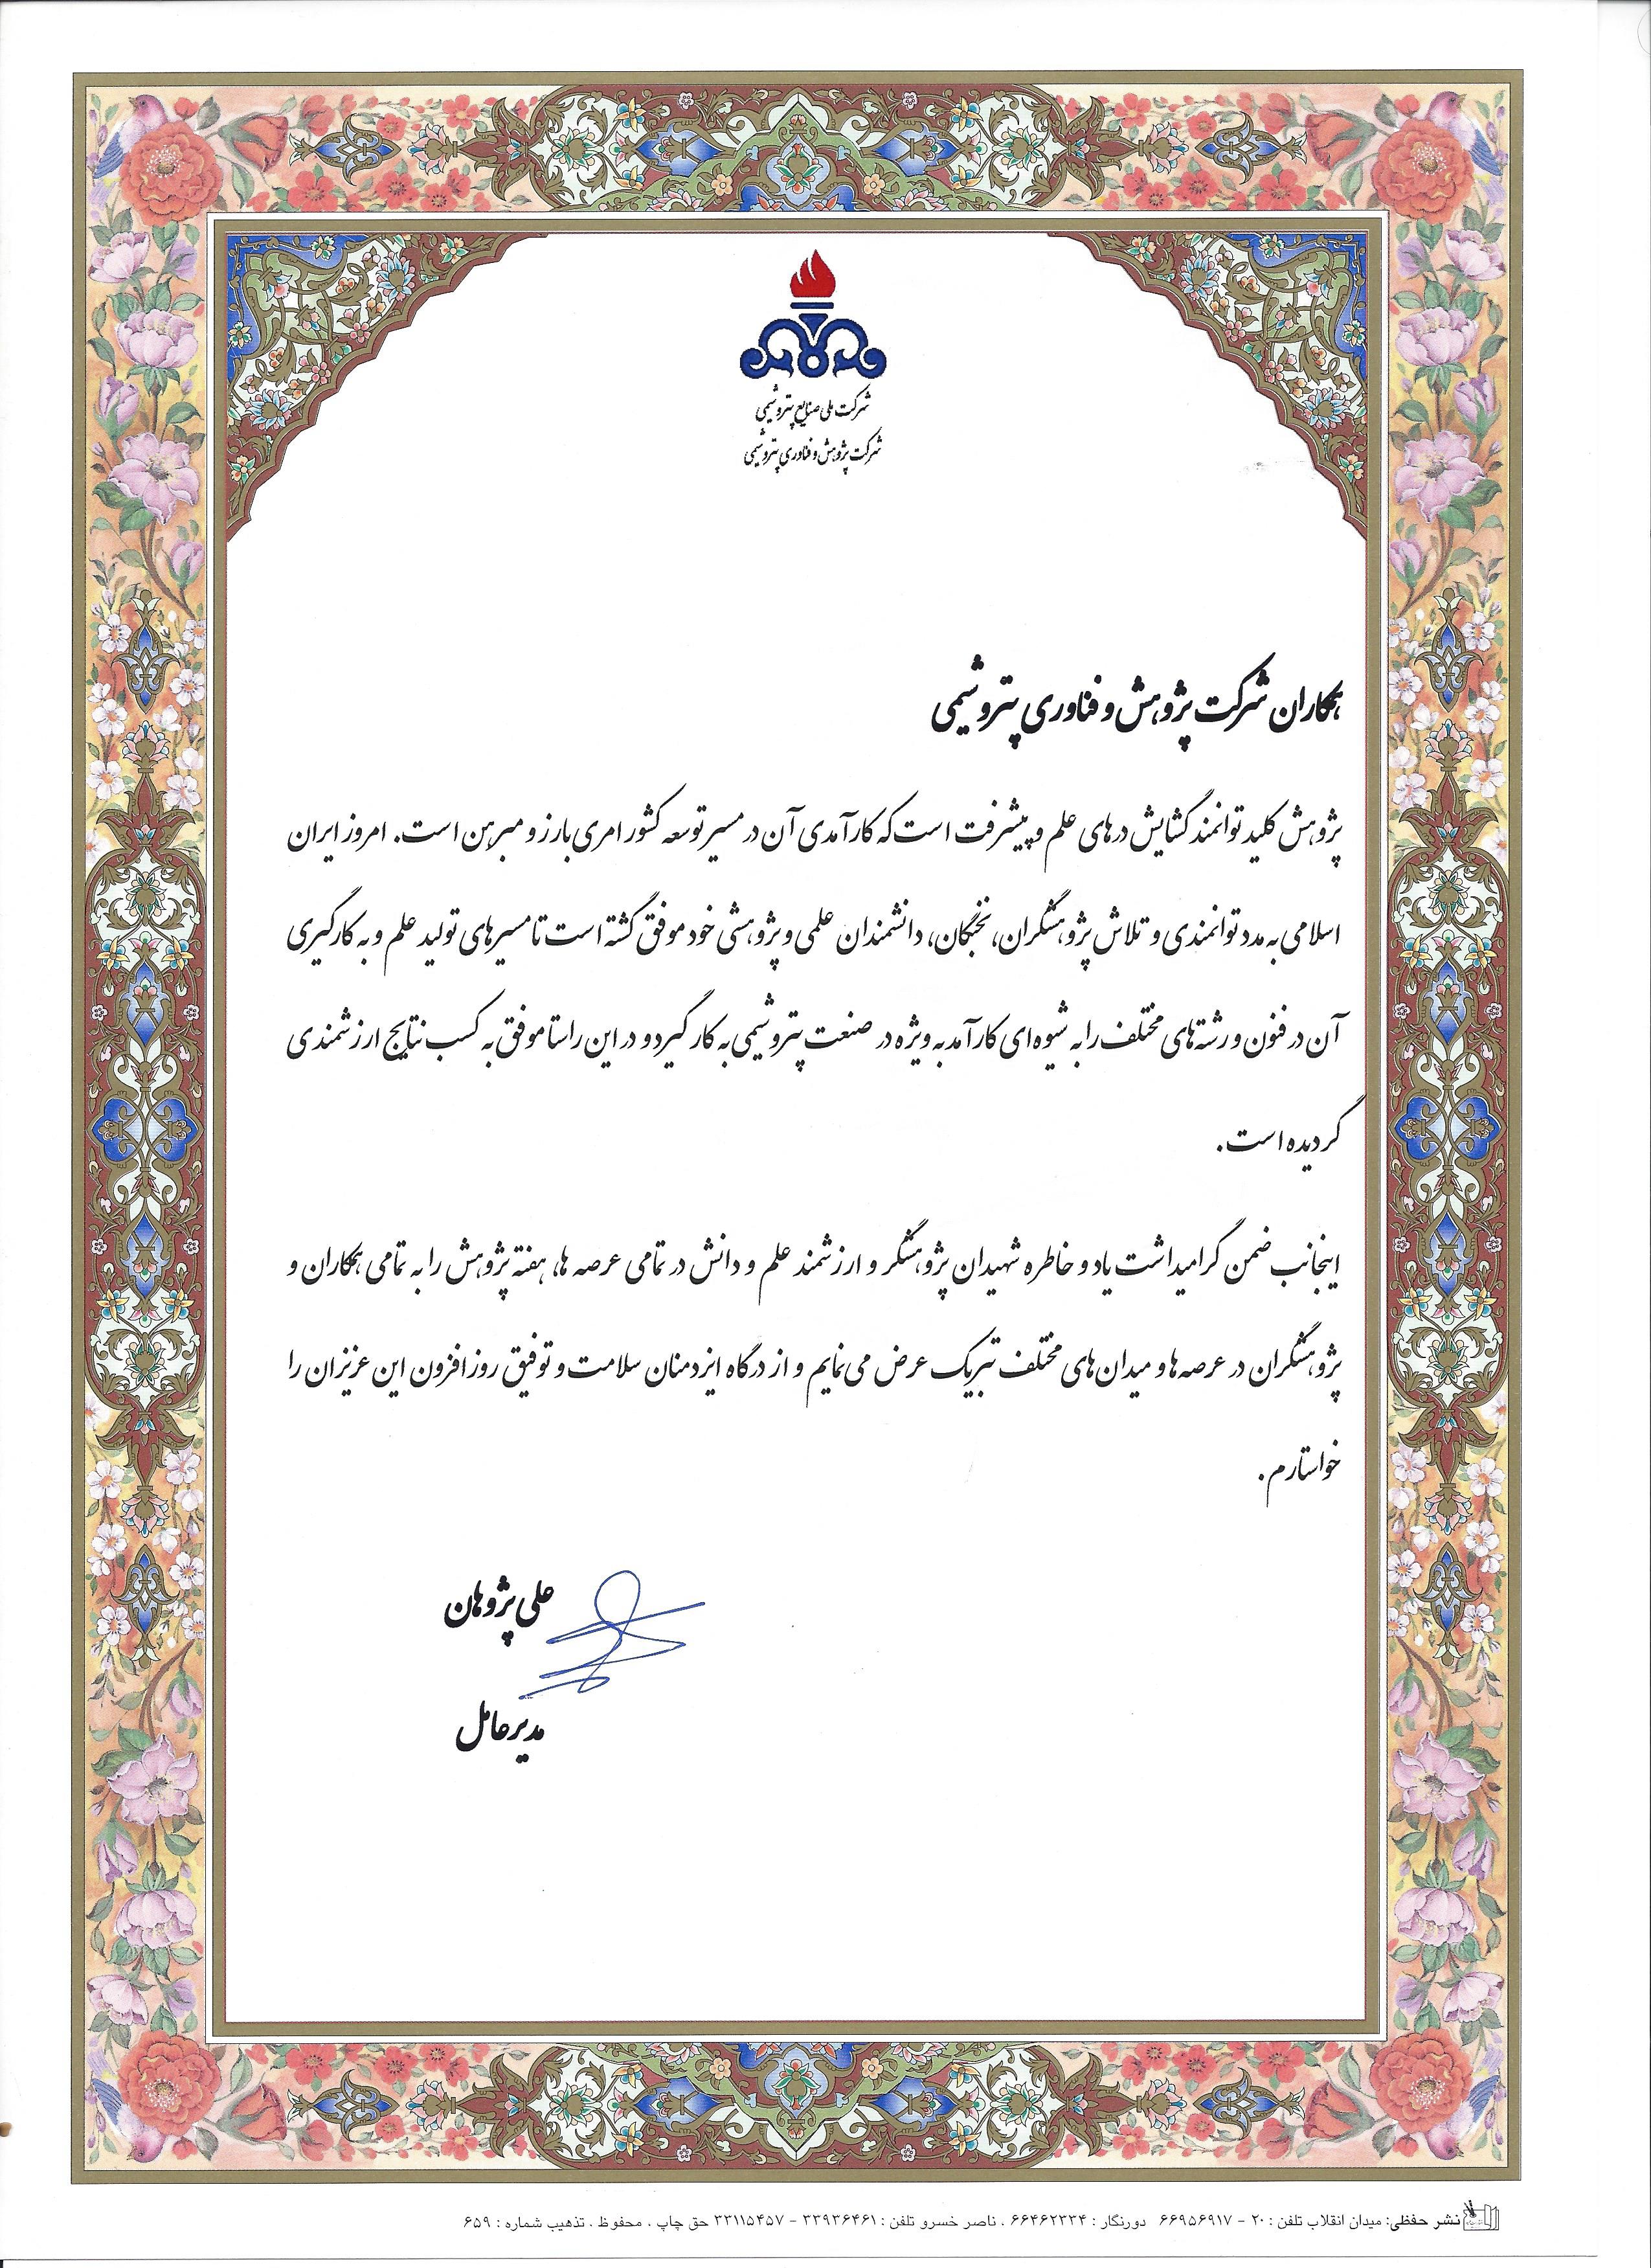 شرکت ملی صنایع پتروشیمی
شرکت پژوهش و فناوری پتروشیمی
همکاران شرکت پژوهش و فناوری پتروشیمی
پژوهش کلید توانمند گشایش درهای علم و پیشرفت است که کارآمدی آن در مسیر توسعه کشور امری بارز و مبرهن است. امروز ایران
اسلامی به مدد توانمندی و تلاش پژوهشگران، نخبگان، دانشمندان علمی و پژوهشی خود موفق گشته است تا مسیرهای تولید علم و به کارگیری
آن در فنون و رشته‌های مختلف را به شیوه‌ای کارآمد به ویژه در صنعت پتروشیمی به کار گیرد و در این راستا موفق به کسب نتایج ارزشمندی
گردیده است.
اینجانب ضمن گرامیداشت یاد و خاطره شهیدان پژوهشگر و ارزشمند علم و دانش در تمامی عرصه ها، هفته پژوهش را به تمامی همکاران و
پژوهشگران در عرصه ها و میدان های مختلف تبریک عرض می نمایم و از درگاه ایزدمنان سلامت و توفیق روزافزون این عزیزان را
خواستارم.
علی پژوهان
مدیرعامل
نشر حفظی: میدان انقلاب تلفن : ۲۰ - ۶۶۹۵۶۹۱۷ دورنگار : ۶۶۴۶۲۳۳۴ . ناصر خسرو تلفن : ۳۳۹۳۶۴۶۱ - ۳۳۱۱۵۴۵۷ حق چاپ ، محفوظ . تذهیب شماره : ۶۵۹